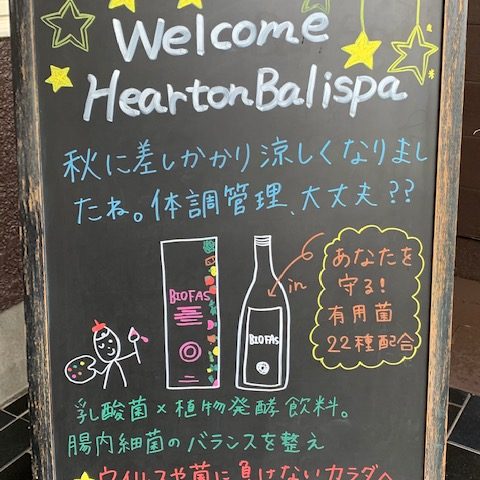 Welcome
HeartonBalispa
秋に差しかかり涼しくなりまし
たね。体調管理、大丈夫??
BIOFAS
BIOFAS
in
あなたを
守る!
有用菌
22種配合
乳酸菌×植物発酵飲料。
腸内細菌のバランスを整え
★ウイルスや菌に負けないカラダへ